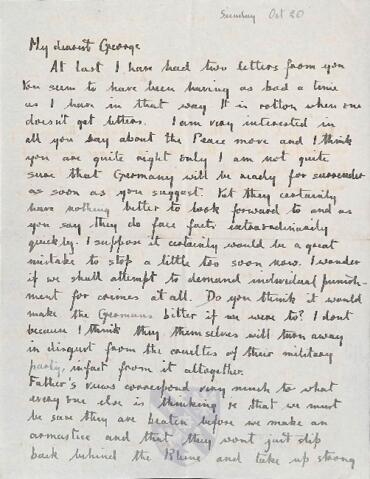 Sunday Oct 20
My dearest George
At last I have had two letters from you
You seem to have been having as bad a time
as I have in that way It is rotten when one
doesn't get letters. I am very interested in
all you say about the Peace move and I think
you are quite right only I am not quite
sure that Germany will be ready for surrender
as soon as you suggest. Yet they certainly
have nothing better to look forward to and as
you say they do face facts extraordinarily
quickly. I suppose it certainly would be a great
mistake to stop a little too soon now. I wonder
if we shall attempt to demand individual punish-
ment for crimes at all. Do you think it would
make the Germans bitter if we were to? I dont
because I think they themselves will turn away
in disgust from the cruelties of their military
party, infact from it altogether.
Father's views correspond very much to what
every one else is thinking re that we must
be sure they are beaten before we make an
armastice and that they wont just slip
back behind the Rhine and take up strong